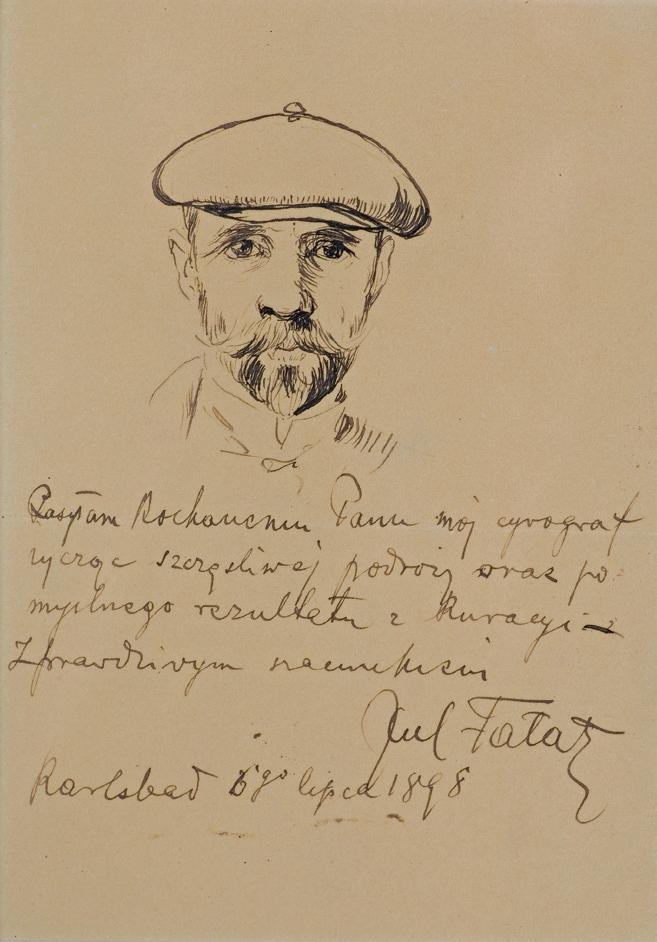 Zasyłam Kochanemu Panu mój cyrograf
życząc szczęśliwej podróży oraz po-
myślnego rezultatu z Kuracyi –
Z prawdziwym szacunkiem
Jul Fałat
Karlsbad 6go lipca 1898